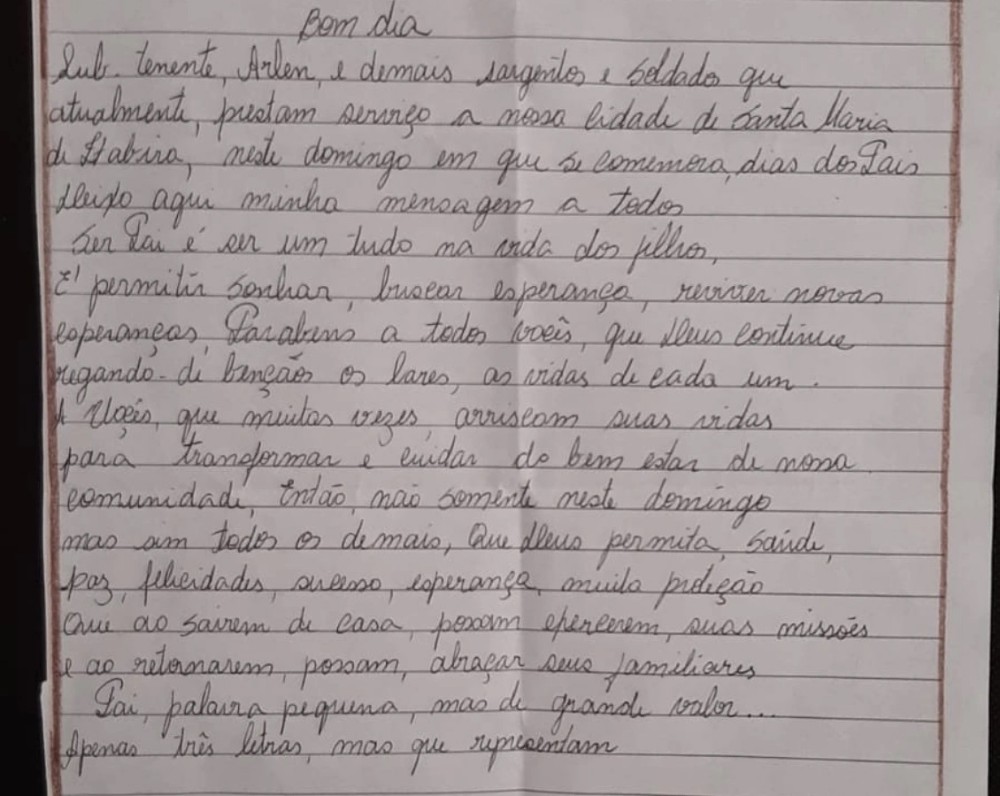 Bom dia
Sub. tenente, Arlen, e demais sargentos e soldado que
atualmente, prestam serviço a nossa cidade de Santa Maria
de Itabira, neste domingo em que se comemora, dias dos Pais
deixo aqui minha mensagem a todos
Ser Pai é ser um tudo na vida dos filhos,
É permitir sonhar, buscar esperança, reviver novas
esperanças, Parabens a todos vocês, que Deus continue
regando-de bençãos os lares, as vidas de cada um.
A Vocês, que muitas vezes, arriscam suas vidas
para transformar e cuidar do bem estar de nossa
comunidade, Então, não somente neste domingo
mas em todos os demais, Que Deus permita, saúde,
paz, felicidades, sucesso, esperança, muita proteção
Que ao sairem de casa, possam exercerem, suas missões
e ao retornarem, possam, abraçar seus familiares
Pai, palavra pequena, mas de grande valor...
Apenas três letras, mas que representam